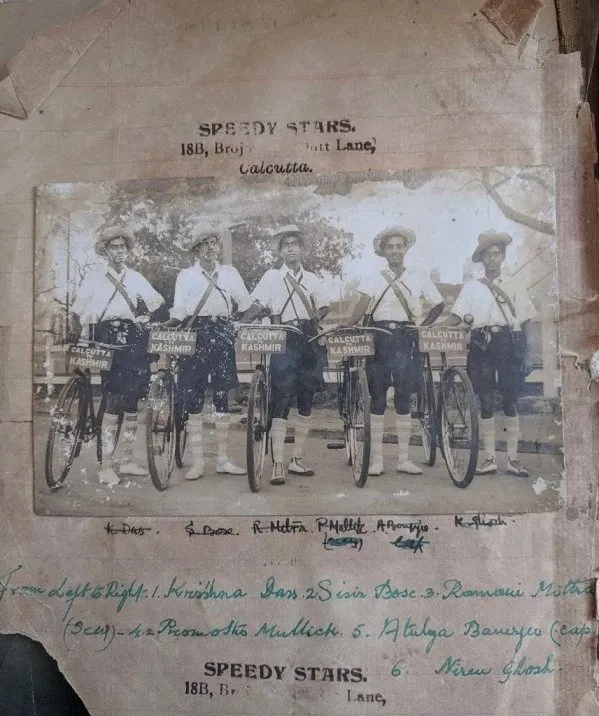 SPEEDY STARS.
18B, Broj Dutt Lane,
Calcutta.
CALCUTTA KASHMIR
CALCUTTA KASHMIR
CALCUTTA KASHMIR
CALCUTTA KASHMIR
CALCUTTA KASHMIR
K Das. S. Bose. R. Mitra P. Mullick A Banerjee. K. Ghosh.
(Secy) Cap
From Left to Right. 1. Krishna Dass. 2 Sisir Bose. 3. Ramani
(Secy) - 4. Promotho Mullick. 5. Atulya Banerjee (Cap
SPEEDY STARS. 6. Niren Ghosh.
18B, Lane,